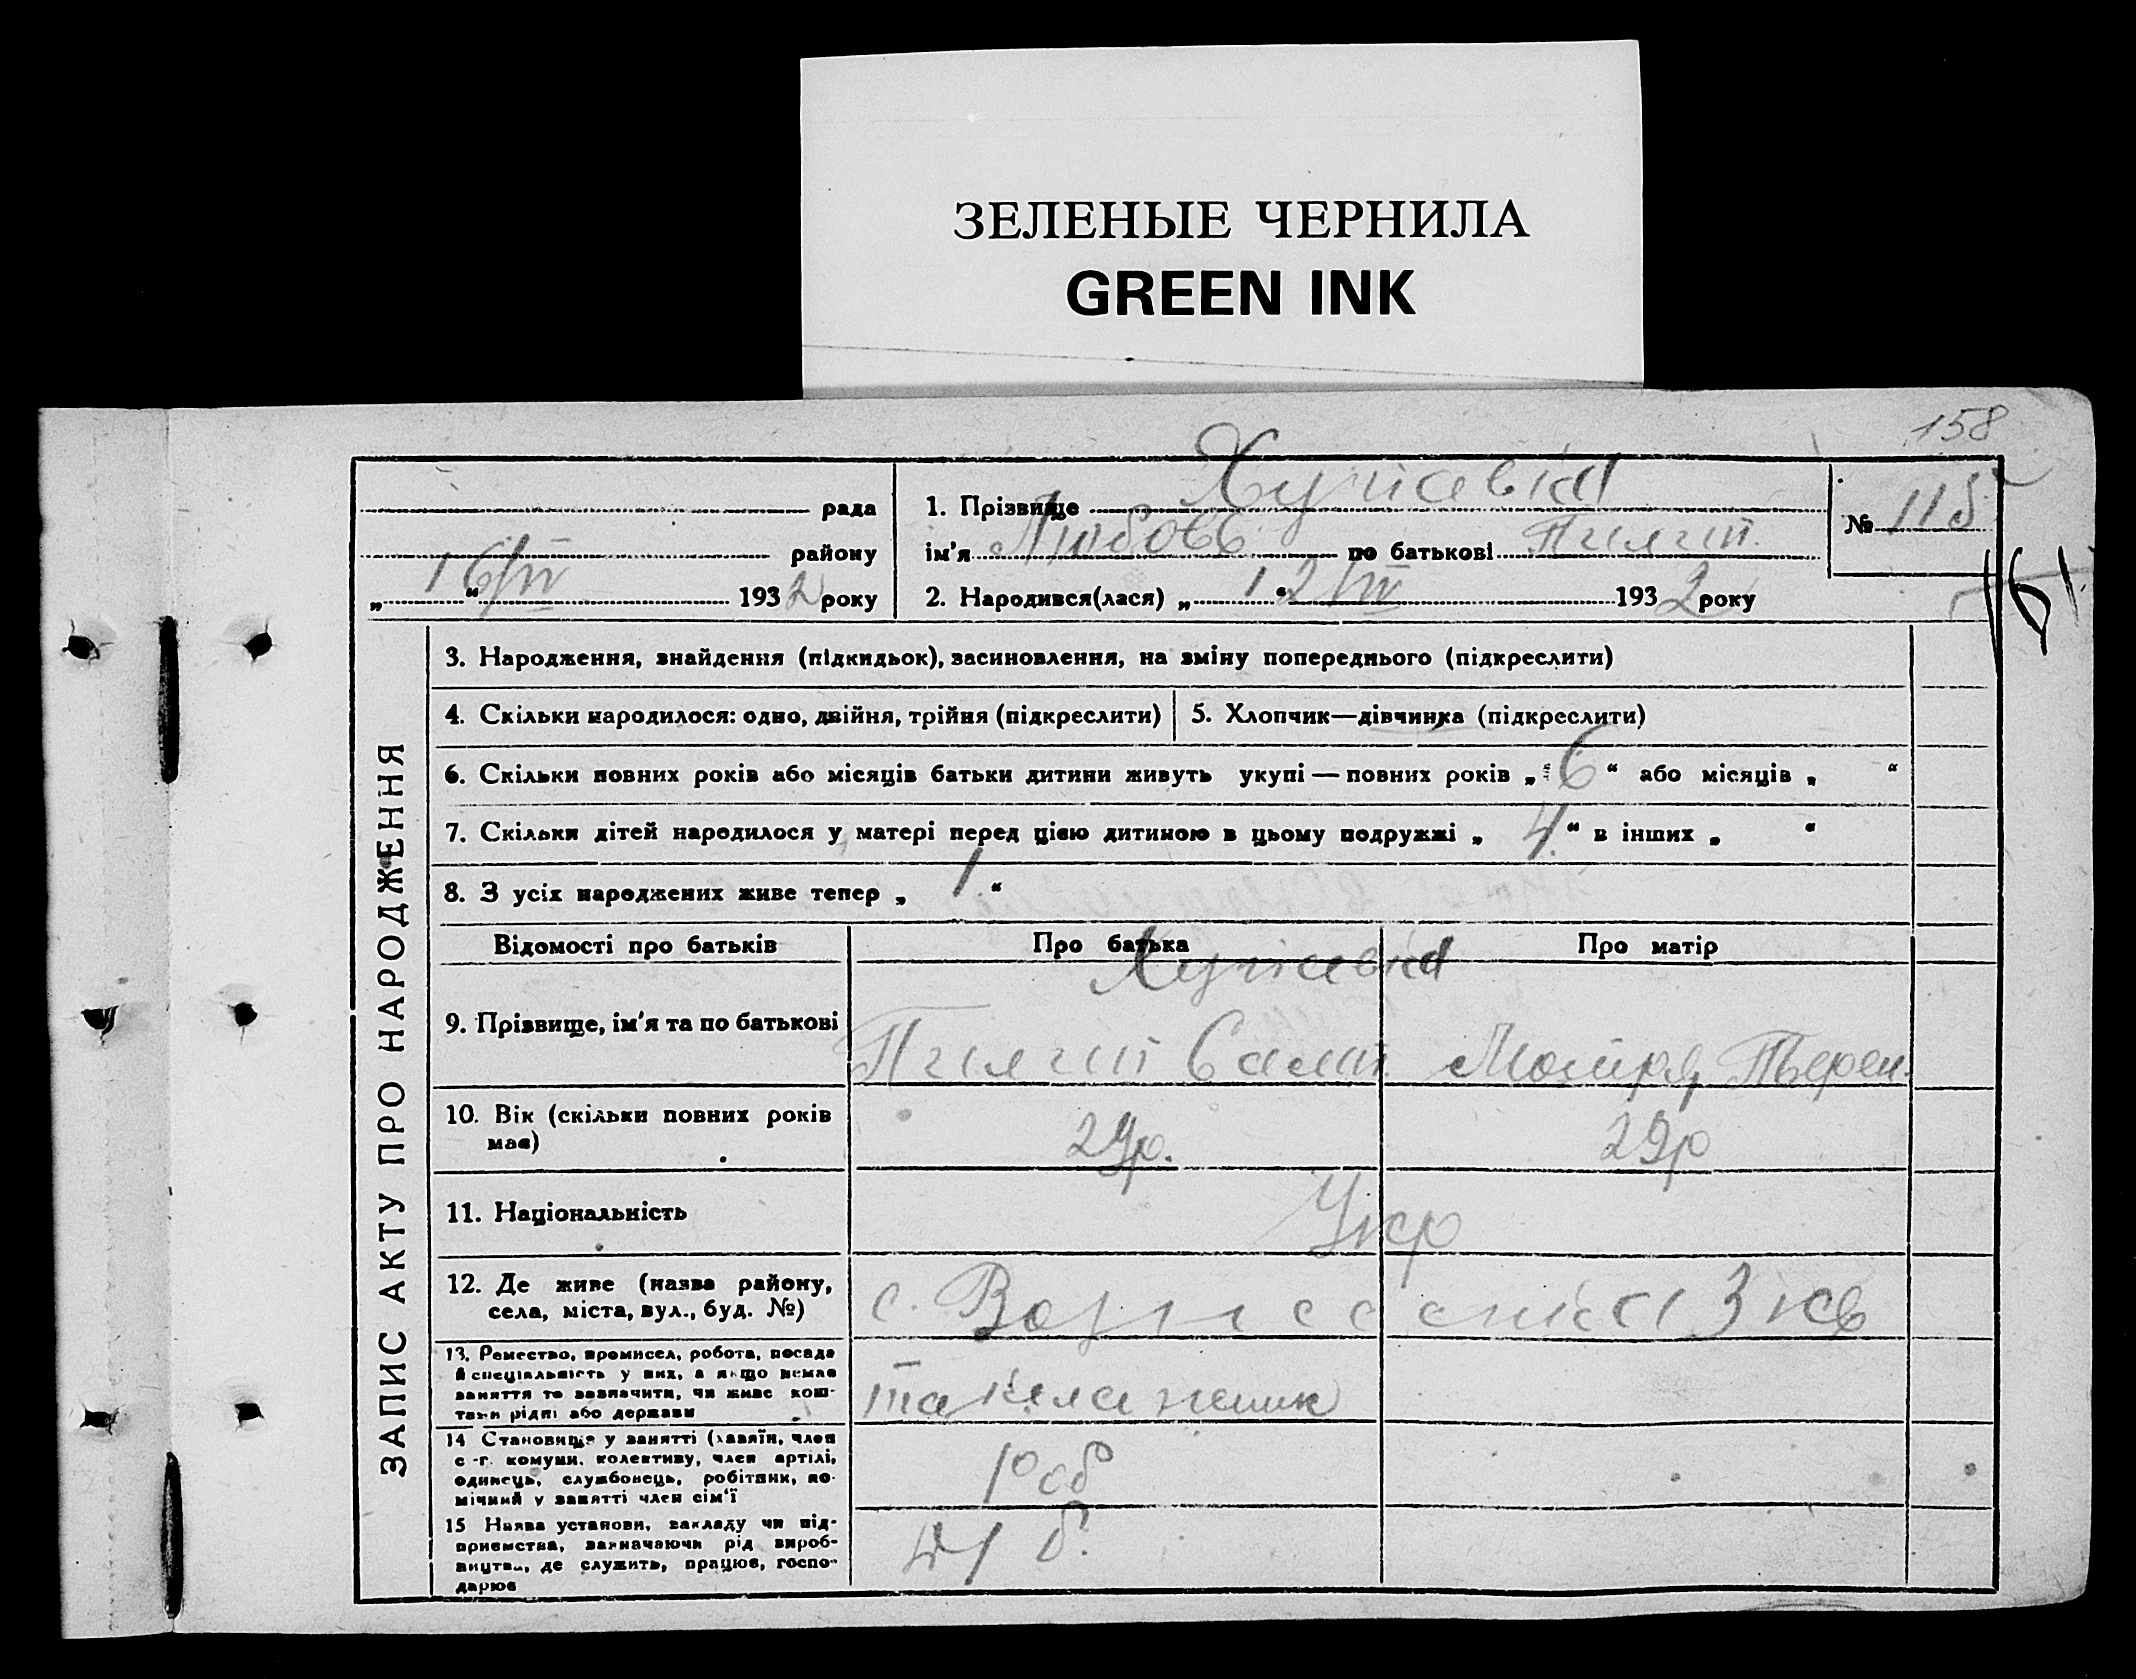 ЗЕЛЕНЫЕ ЧЕРНИЛА
GREEN INK
158
рада
району
16/IV
„ “ 1932 року
1. Прізвище
ім'я Любовь по батькові
2. Народився(лася) „12/IV“ 1932 року
№ 115
3. Народження, знайдення (підкидьок), засиновлення, на зміну попереднього (підкреслити)
4. Скільки народилося: одно, двійня, трійня (підкреслити)
5. Хлопчик—дівчинка (підкреслити)
6. Скільки повних років або місяців батьки дитини живуть укупі — повних років „6“ або місяців „ “
7. Скільки дітей народилося у матері перед цією дитиною в цьому подружжі „4“ в інших „ “
8. З усіх народжених живе тепер „1“
ЗАПИС АКТУ ПРО НАРОДЖЕННЯ
Відомості про батьків
Про батька
Про матір
9. Прізвище, ім'я та по батькові
Мотря Терен.
10. Вік (скільки повних років
має)
29р.
29р
11. Національність
Укр
12. Де живе (назва району,
села, міста, вул., буд. №)
с. Вознесенка 3 кв
13. Ремество, промисел, робота, посада
й спеціальність у них, а якщо немає
заняття то зазначити, чи живе кош-
тами рідні або держави
такелажник
14 Становище у занятті (хазяїн, член
с.-г. комуни, колективу, член артілі,
одинець, службовець, робітник, по-
мічний у занятті член сім'ї
Роб
15 Назва установи, закладу чи під-
приємства, зазначаючи рід вироб-
ництва, де служить, працює, госпо-
дарює